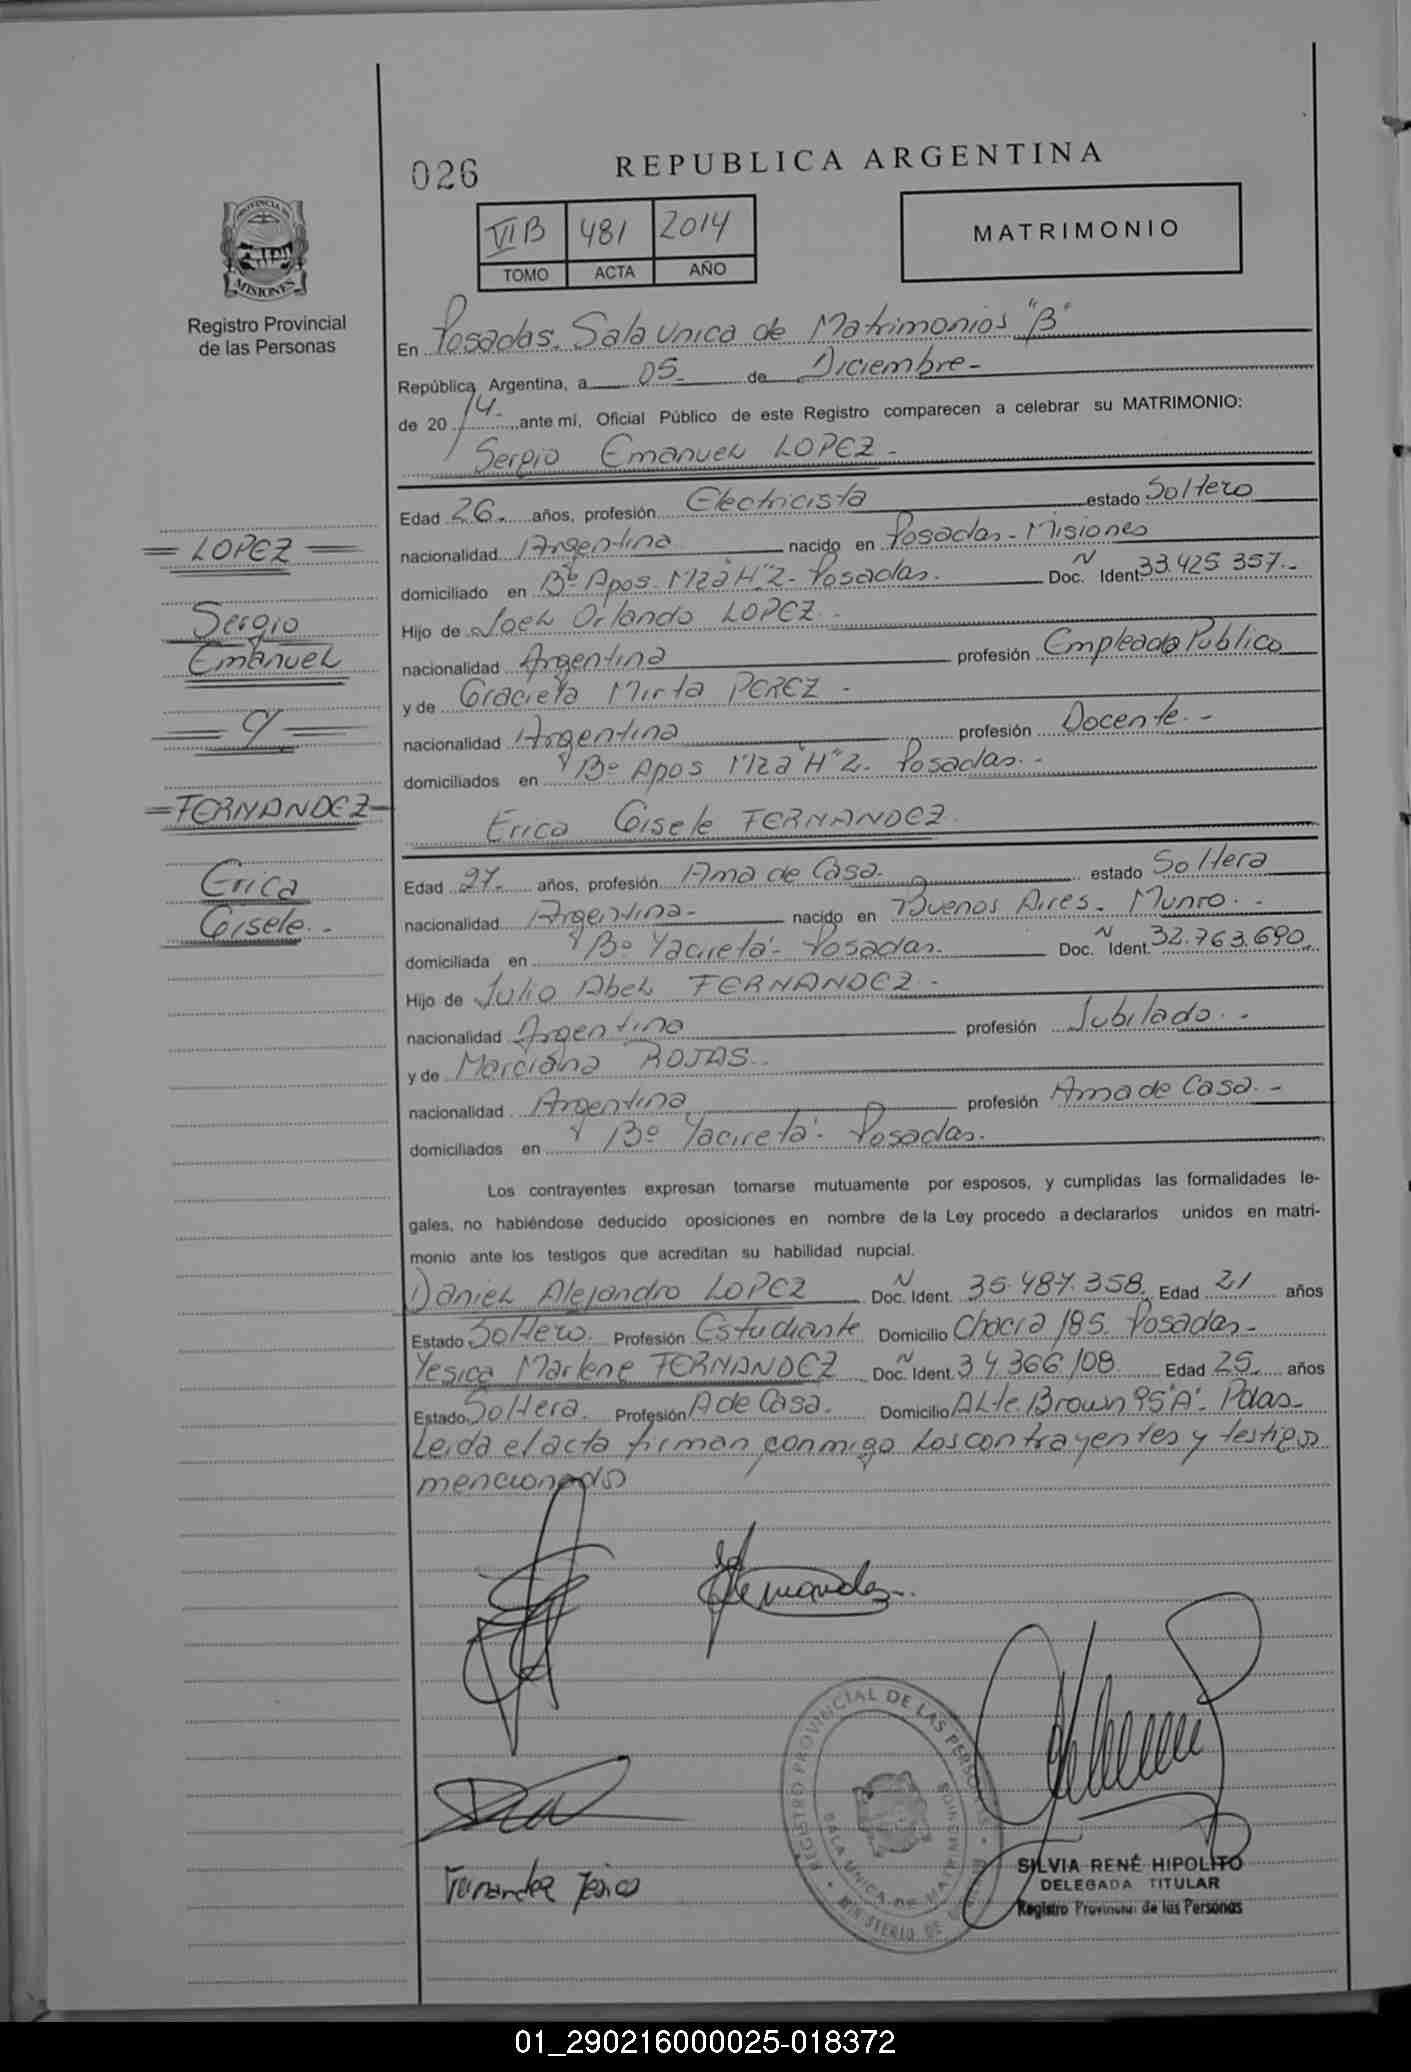 026
REPUBLICA ARGENTINA
VI B 481 2014
TOMO ACTA AÑO
MATRIMONIO
PROVINCIA DE
MISIONES
Registro Provincial
de las Personas
En Posadas. Sala Unica de Matrimonios "B"
República Argentina, a 05 de Diciembre -
de 20 14. ante mí, Oficial Público de este Registro comparecen a celebrar su MATRIMONIO:
Sergio Emanuel LOPEZ -
Edad 26. años, profesión Electricista estado Soltero
nacionalidad Argentina nacido en Posadas - Misiones
domiciliado en Bº Apos. Mza "H" 2 - Posadas. Doc. N Ident 33.425 357. -
Hijo de Joel Orlando LOPEZ. -
nacionalidad Argentina profesión Empleado Publico
y de Graciela Mirta PEREZ -
nacionalidad Argentina profesión Docente. -
domiciliados en Bº Apos Mza "H" 2 - Posadas. -
Erica Gisele FERNANDEZ.
Edad 27. años, profesión Ama de Casa. estado Soltera
nacionalidad Argentina - nacido en Buenos Aires - Munro. -
domiciliada en Bº Yacireta - Posadas. Doc. N Ident. 32.763.690
Hijo de Julio Abel FERNANDEZ. -
nacionalidad Argentina profesión Jubilado. -
y de Marciana ROJAS.
nacionalidad Argentina profesión Ama de Casa. -
domiciliados en Bº Yacireta - Posadas.
Los contrayentes expresan tomarse mutuamente por esposos, y cumplidas las formalidades le-
gales, no habiéndose deducido oposiciones en nombre de la Ley procedo a declararlos unidos en matri-
monio ante los testigos que acreditan su habilidad nupcial.
Daniel Alejandro LOPEZ Doc. N Ident. 35.487.358. Edad 21 años
Estado Soltero. Profesión Estudiante Domicilio Chacra 185. Posadas -
Yesica Marlene FERNANDEZ Doc. N Ident. 34.366.108. Edad 25 años
Estado Soltera. Profesión A de Casa. Domicilio Alte. Brown 95 "A" - Pdas -
Leida el acta firman conmigo los contrayentes y testigos
mencionados
= LOPEZ =
Sergio
Emanuel
= c/ =
= FERNANDEZ =
Erica
Gisele. -
Fernandez
REGISTRO PROVINCIAL DE LAS PERSONAS
SALA UNICA DE MATRIMONIOS
MINISTERIO DE
Fernandez Jesica
SILVIA RENÉ HIPOLITO
DELEGADA TITULAR
Registro Provincial de las Personas
01_290216000025-018372